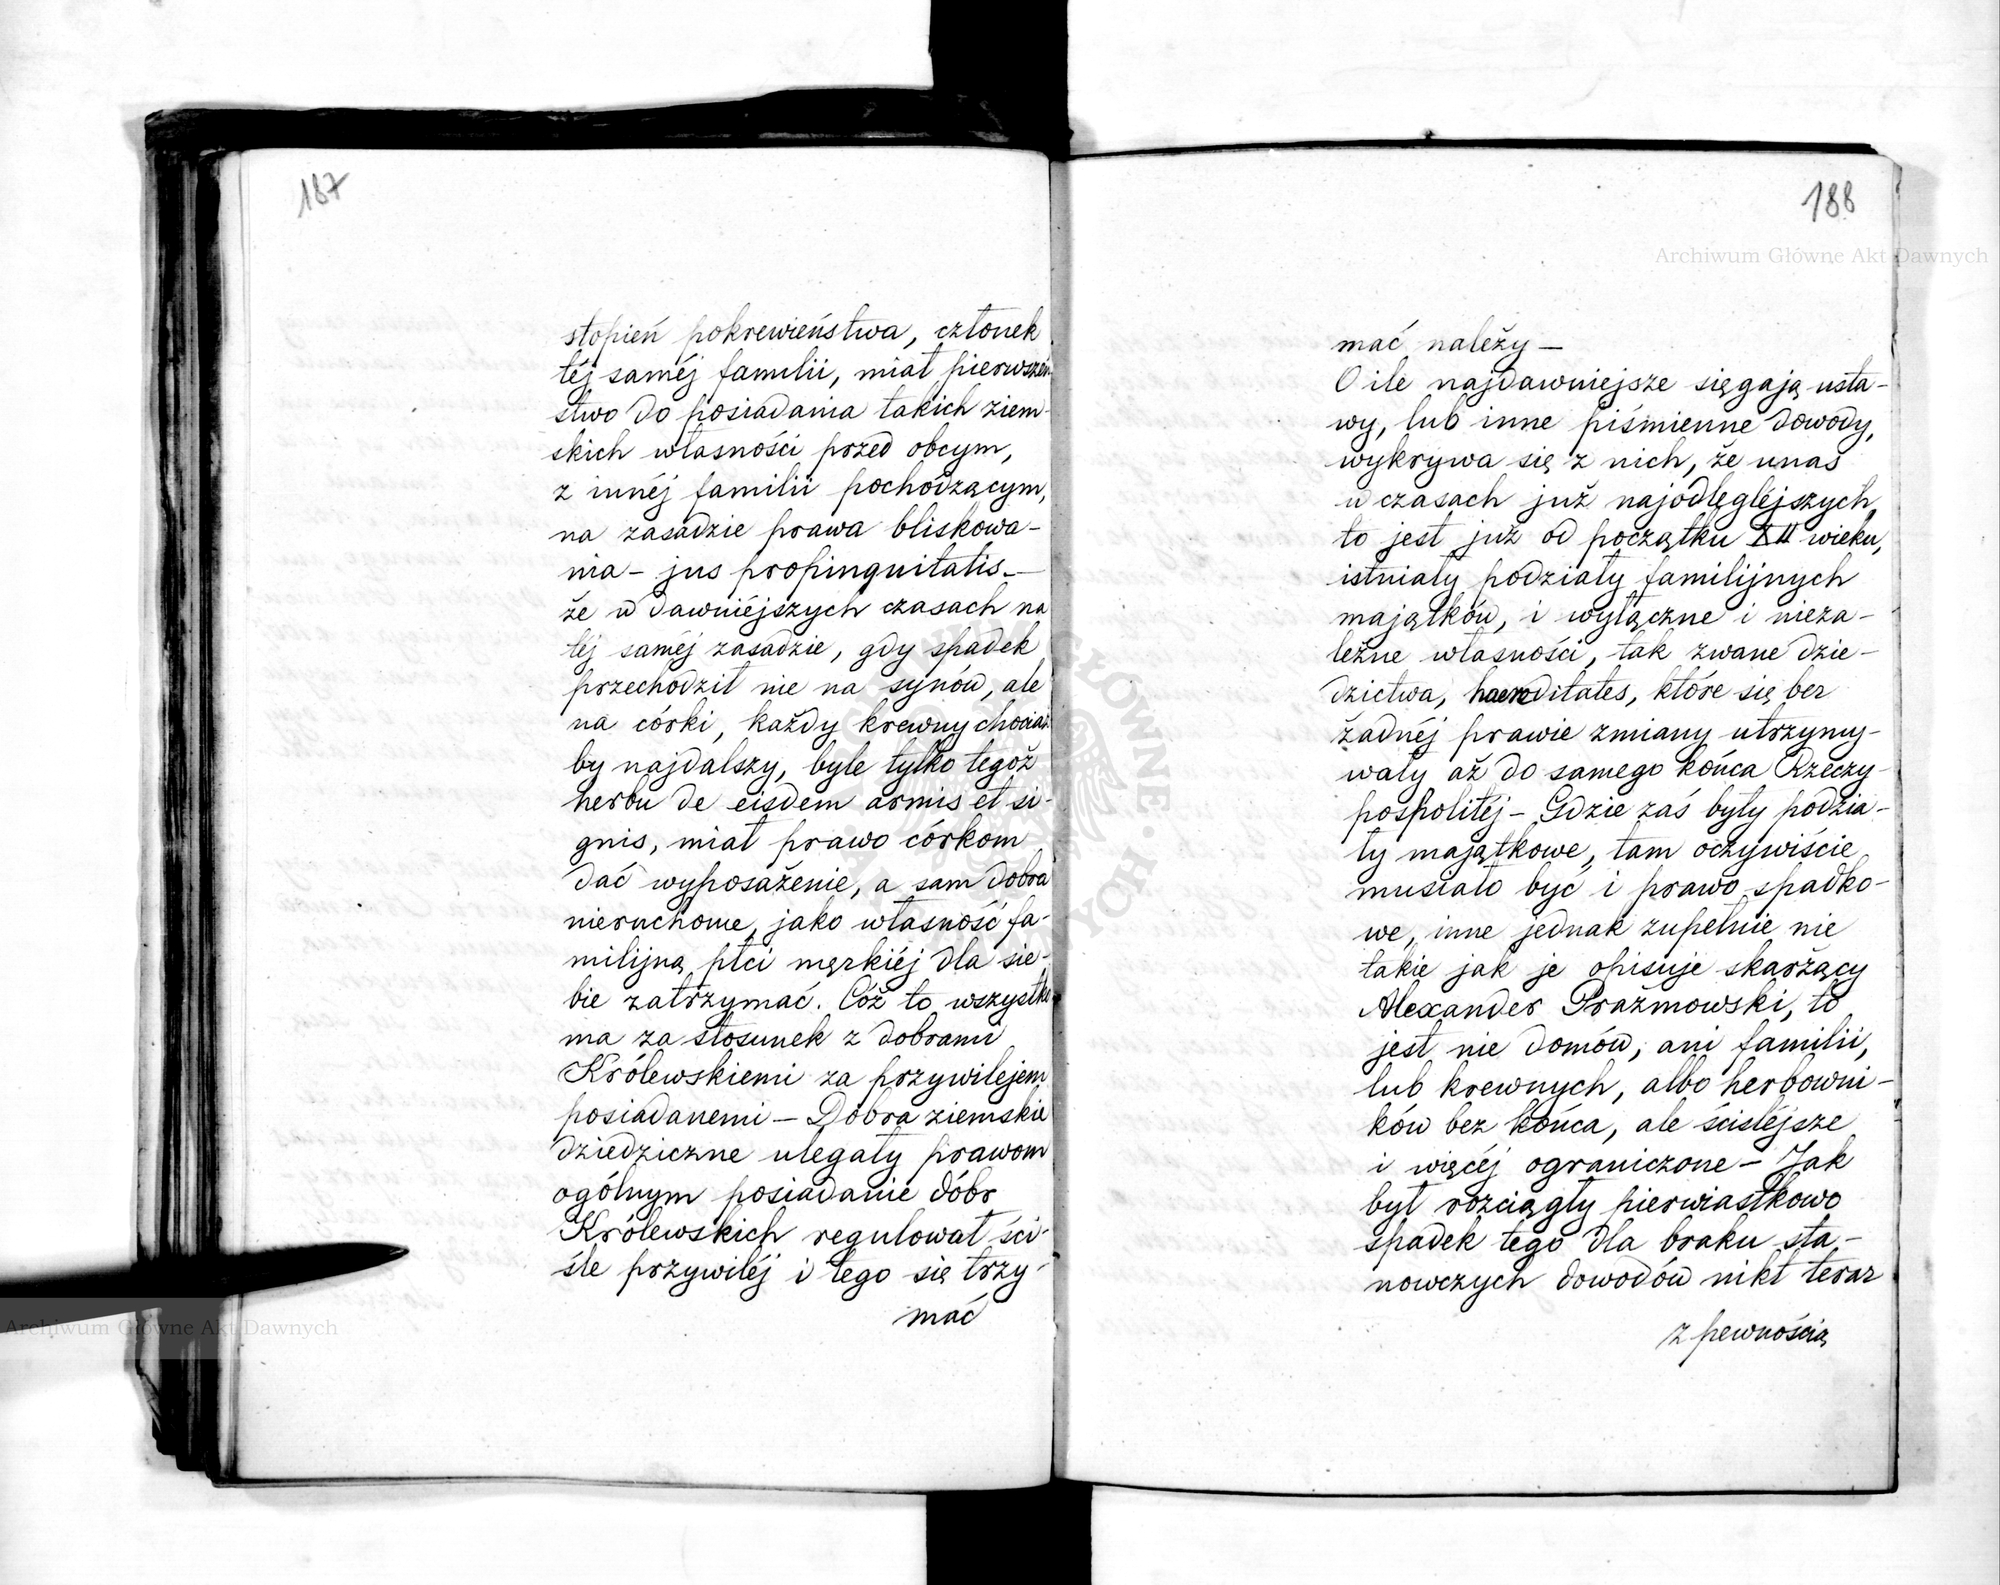 187
stopień pokrewieństwa, członek
téj saméj familii, miał pierwszeń-
stwo do posiadania takich ziem-
skich własności przed obcym,
z innéj familii pochodzącym,
na zasadzie prawa bliskowa-
nia – jus propinquitatis –
że w dawniéjszych czasach na
téj saméj zasadzie, gdy spadek
przechodził nie na synów, ale
na córki, każdy krewny chociaż
by najdalszy, byle tylko tegoż
herbu de eisdem armis et si-
gnis, miał prawo córkom
dać wyposażenie, a sam dobra
nieruchome, jako własność fa-
milijną płci męzkiéj dla sie-
bie zatrzymać. Cóż to wszystko
ma za stosunek z dobrami
Królewskiemi za przywilejem
posiadanemi – Dobra ziemskie
dziedziczne ulegały prawom
ogólnym posiadanie dóbr
Królewskich regulował ści-
śle przywiléj i tego się trzy-
mać
188
Archiwum Główne Akt Dawnych
mać należy –
O ile najdawniejsze sięgają usta-
wy, lub inne piśmienne dowody,
wykrywa się z nich, że unas
w czasach już najodległéjszych,
to jest już od początku XII wieku,
istniały podziały familijnych
majątków, i wyłączne i nieza-
leżne własności, tak zwane dzie-
dzictwa, haereditates, które się bez
żadnéj prawie zmiany utrzymy-
wały aż do samego końca Rzeczy-
pospolitéj – Gdzie zaś były podzia-
ły majątkowe, tam oczywiście
musiało być i prawo spadko-
we, inne jednak zupełnie nie
takie jak je opisuje skarżący
Alexander Prażmowski, to
jest nie domów, ani familii,
lub krewnych, albo herbowni-
ków bez końca, ale ściśléjsze
i więcéj ograniczone – Jak
był rozciągły pierwiastkowo
spadek tego dla braku sta-
nowczych dowodów nikt teraz
z pewnością
Archiwum Główne Akt Dawnych